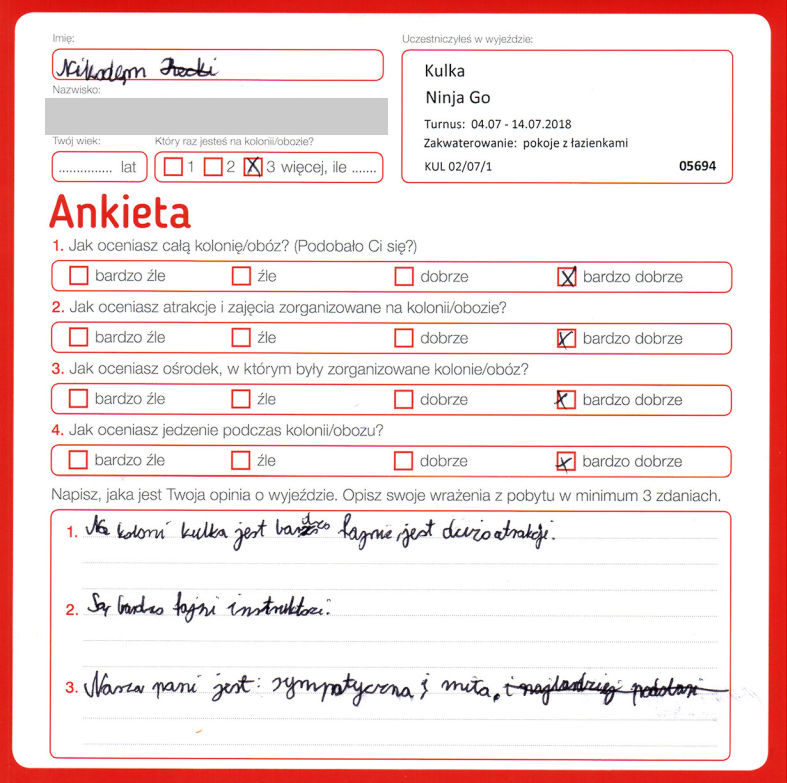 Imię:
Nikodem
Nazwisko:
Twój wiek:
Który raz jesteś na kolonii/obozie?
............... lat
1 2 X 3 więcej, ile .......
Uczestniczyłeś w wyjeździe:
Kulka
Ninja Go
Turnus: 04.07 - 14.07.2018
Zakwaterowanie: pokoje z łazienkami
KUL 02/07/1 05694
Ankieta
1. Jak oceniasz całą kolonię/obóz? (Podobało Ci się?)
bardzo źle źle dobrze X bardzo dobrze
2. Jak oceniasz atrakcje i zajęcia zorganizowane na kolonii/obozie?
bardzo źle źle dobrze X bardzo dobrze
3. Jak oceniasz ośrodek, w którym były zorganizowane kolonie/obóz?
bardzo źle źle dobrze X bardzo dobrze
4. Jak oceniasz jedzenie podczas kolonii/obozu?
bardzo źle źle dobrze X bardzo dobrze
Napisz, jaka jest Twoja opinia o wyjeździe. Opisz swoje wrażenia z pobytu w minimum 3 zdaniach.
1. Na koloni kulka jest bardzo fajnie, jest dużo atrakcji.
2. Są bardzo fajni instruktorzi.
3. Nasza pani jest: sympatyczna i miła.